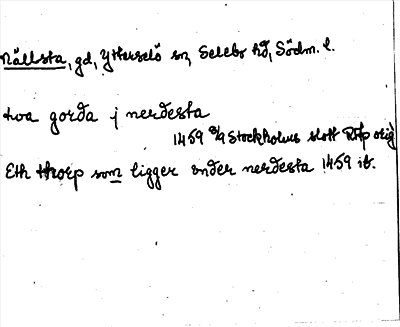 Nällsta, gd, Ytterselö sn, Selebo hd, Södm. l.
tva gorda j nerdesta
1459 3/9 Stockholms slott RAp orig
Eth thorp som ligger vnder nerdesta 1459 ib.